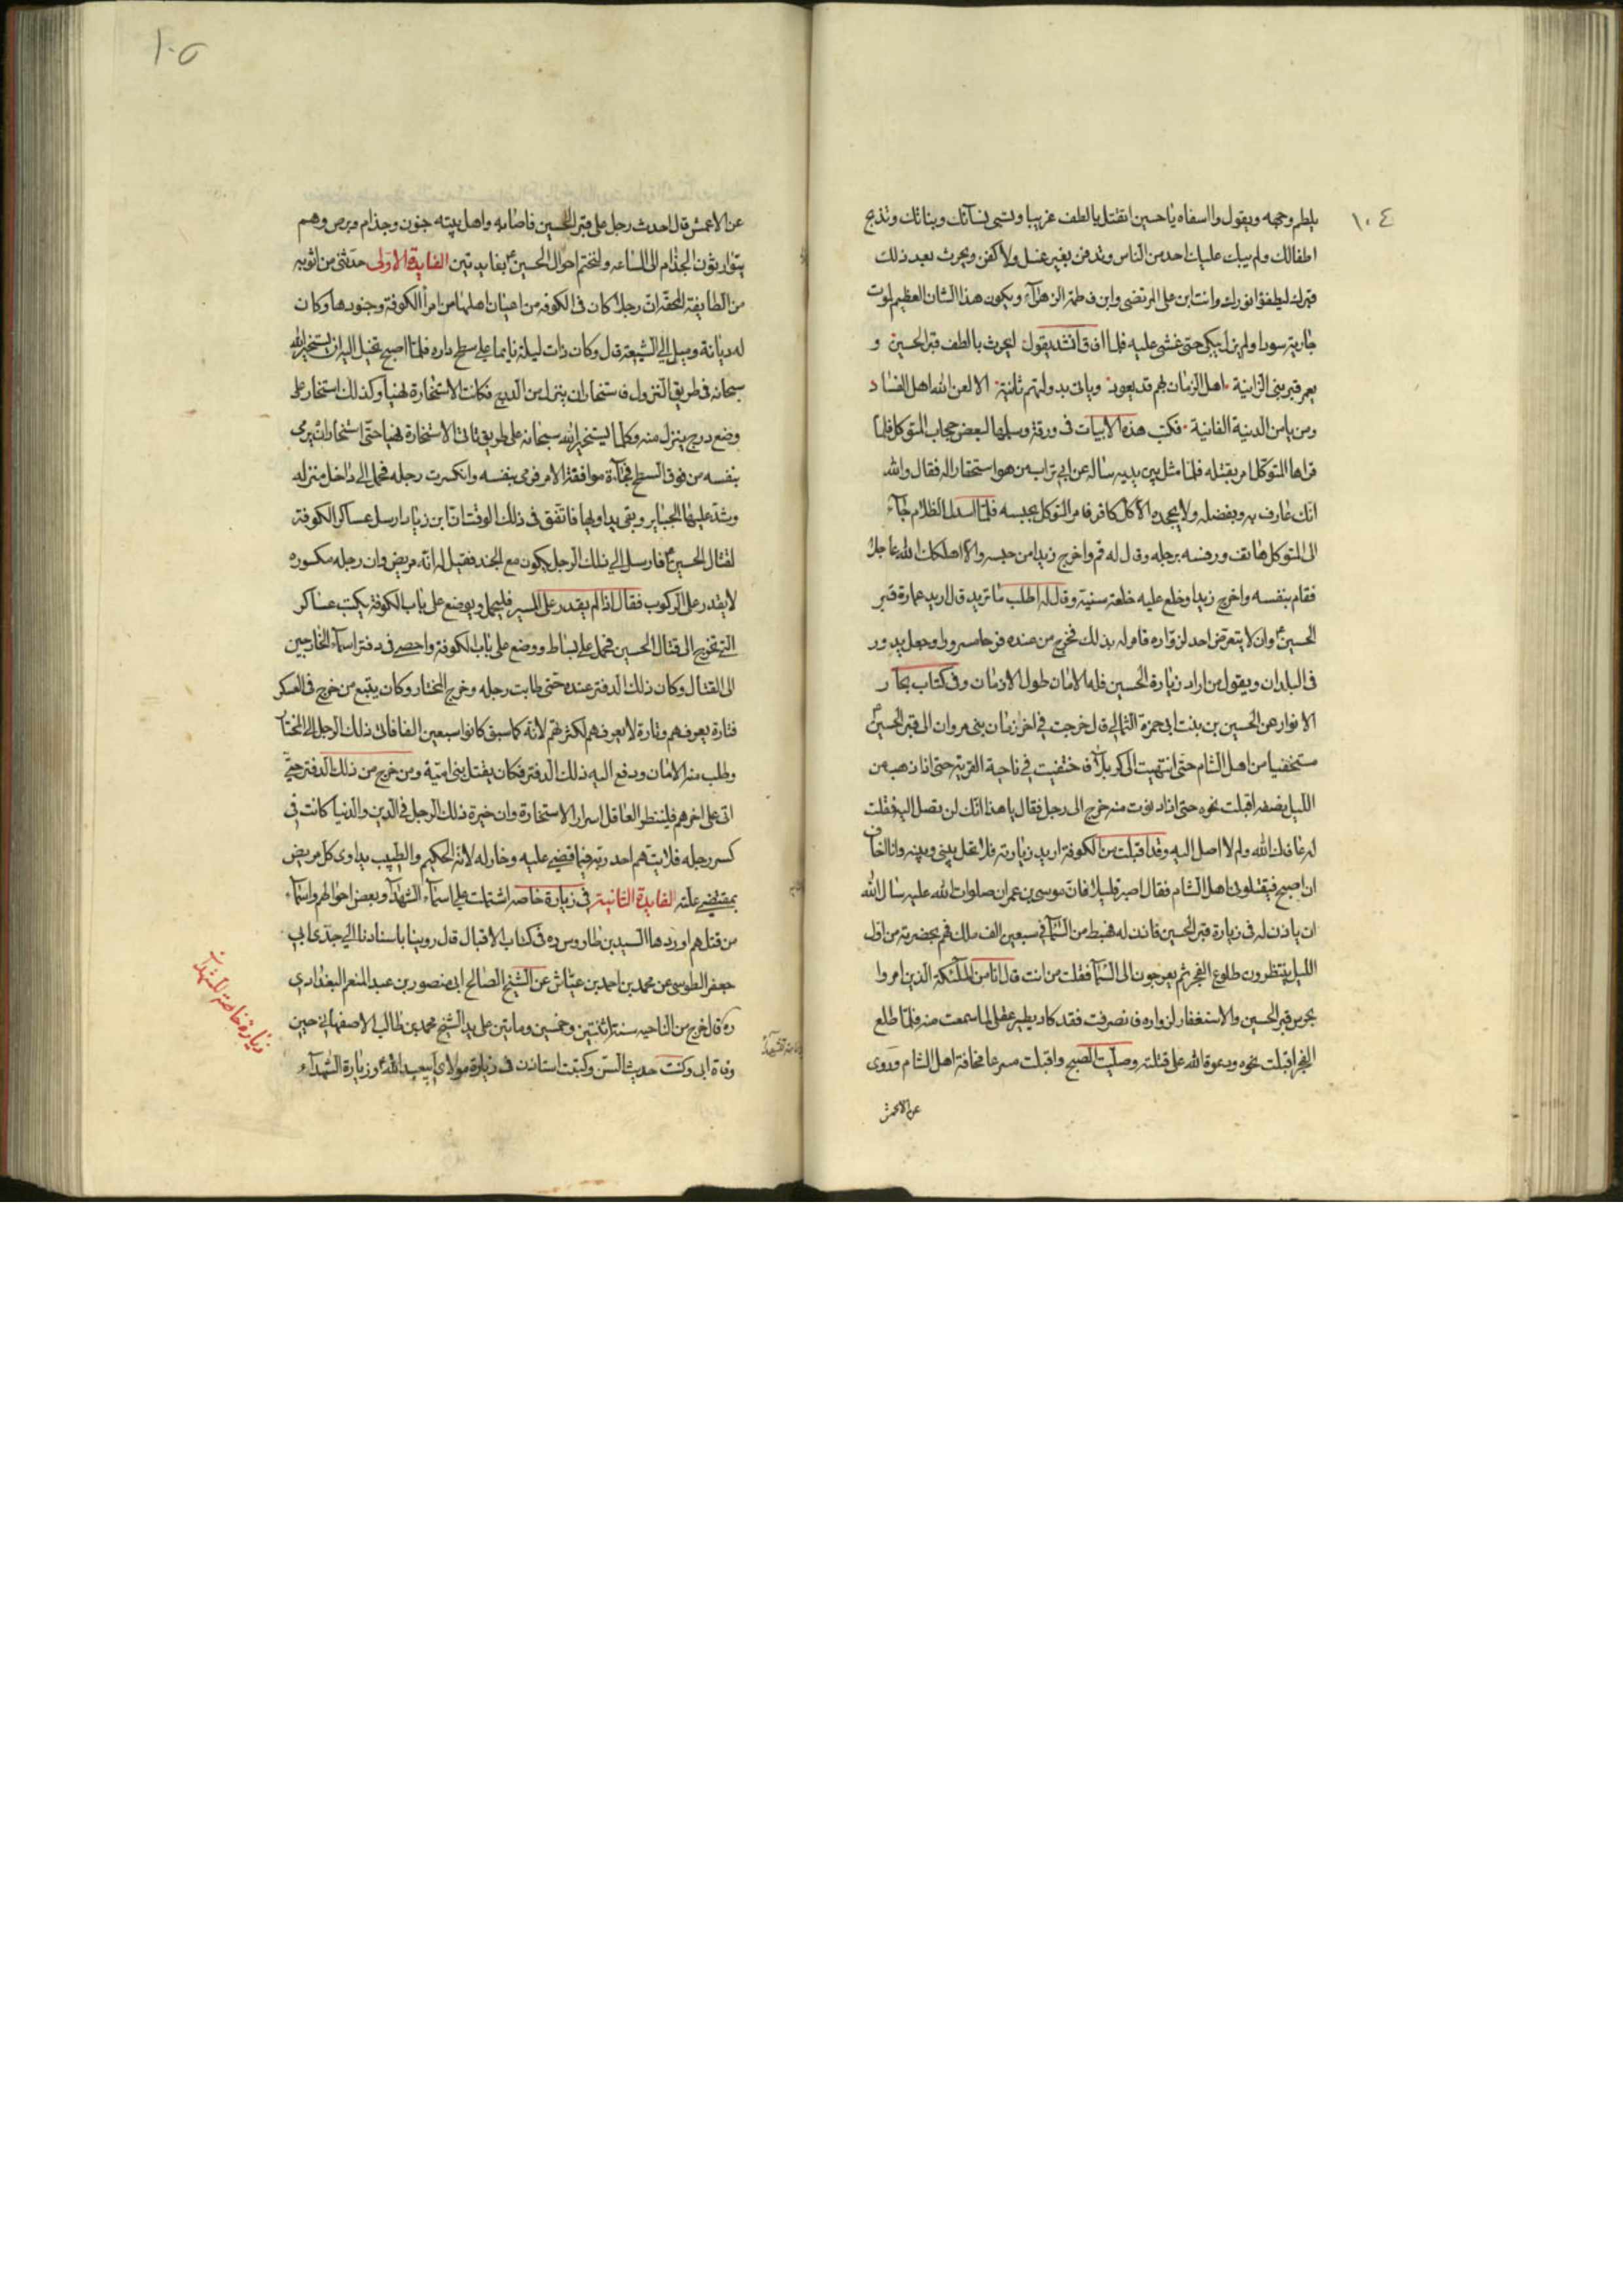 ١٠٤
يلطم وجهه ويقول وا اسفاه يا حسين اتقتل بالطف غريبا وتسبى نسآئك وبناتك وتذبح
اطفالك ولم يبك عليك احد من الناس وتدفن بغير غسل ولا كفن ويحرث بعد ذلك
قبرك ليطفؤا نورك وانت ابن على المرتضى وابن فاطمة الزهرآء ويكون هذا الشان العظيم لموت
جارية سودا ولم يزل يبكى حتى غشى عليه فلما افاق انشد يقول ايحرث بالطف قبر الحسين و
يعمر قبر بنى الزانية اهل الزمان لهم قد يعود وياتى بدولتهم ثانية الا لعن الله اهل الفساد
ومن يامن الدنية الفانية فكتب هذه الابيات فى ورقة وسلمها لبعض حجاب المتوكل فلما
قراها المتوكل امر بقتله فلما مثل بين يديه ساله عن ابى تراب من هو استحقارا له فقال والله
انك عارف به وبفضله ولا يجحده الا كل كافر فامر المتوكل بحبسه فلما اسدل الظلام جآء
الى المتوكل هاتف ورفسه برجله وقال له قم واخرج زيدا من حبسه والا اهلكك الله عاجلا
فقام بنفسه واخرج زيدا وخلع عليه خلعة سنية وقال له اطلب ما تريد قال اريد عمارة قبر
الحسين وان لا يتعرض احد لزواره فامر له بذلك فخرج من عنده فرحا مسرورا وجعل يدور
فى البلدان ويقول من اراد زيارة الحسين فله الامان طول الازمان وفى كتاب بحار
الانوار عن الحسين بن بنت ابى حمزة الثمالى قال خرجت فى اخر زمان بنى مروان الى قبر الحسين
مستخفيا من اهل الشام حتى انتهيت الى كربلآء فاختفيت فى ناحية القرية حتى اذا ذهب من
الليل نصفه اقبلت نحوه حتى اذا دنوت منه خرج الى رجل فقال يا هذا انك لن تصل اليه فقلت
له عافاك الله ولم لا اصل اليه وقد اقبلت من الكوفة اريد زيارته فلا تحل بينى وبينه وانا اخاف
ان اصبح فيقتلونى اهل الشام فقال اصبر قليلا فان موسى بن عمران صلوات الله عليه سال الله
ان ياذن له فى زيارة قبر الحسين فاذن له فهبط من السمآء فى سبعين الف ملك فهم بحضرته من اول
الليل ينتظرون طلوع الفجر ثم يعرجون الى السمآء فقلت من انت قال انا من الملئكة الذين امروا
بحرس قبر الحسين والاستغفار لزواره فانصرفت فقد كاد يطير عقلى لما سمعت منه فلما طلع
الفجر اقبلت نحوه ودعوة الله على قتلته وصليت الصبح واقبلت مسرعا مخافة اهل الشام وروى
عن الاعمش
١٠٥
عن الاعمش قال احدث رجل على قبر الحسين فاصابه واهل بيته جنون وجذام وبرص وهم
يتوارثون الجذام الى الساعه ولنختم احوال الحسين بفايدتين الفايدة الاولى حدثنى من اثق به
من الطايفة المحقة ان رجلا كان فى الكوفه من اعيان اهلها من امرآ الكوفة وجنودها وكان
له ديانة وميل الى الشيعة قال وكان ذات ليلة نايما على سطح داره فلما اصبح تخيل اليه ان يستخير الله
سبحانه فى طريق النزول فاستخار ان ينزل من الدرج فكانت الاستخارة نهيا وكذلك استخار على
وضع درج ينزل منه وكلما يستخير الله سبحانه على طريق تاتى الاستخارة نهيا حتى استخار ان يرمى
بنفسه من فوق السطح فجآءة موافقة الامر فرمى بنفسه وانكسرت رجله فحمل الى داخل منزله
وشد عليها الجباير وبقى يداويها فاتفق فى ذلك الوقت ان ابن زياد ارسل عساكر الكوفة
لقتال الحسين فارسل الى ذلك الرجل يكون مع الجند فقيل له انه مريض وان رجله مكسوره
لا يقدر على الركوب فقال اذا لم يقدر على المسير فليحمل ويوضع على باب الكوفة يكتب عساكر
التى تخرج الى قتال الحسين فحمل على بساط ووضع على باب الكوفة واحصى فى دفتر اسمآء الخارجين
الى القتال وكان ذلك الدفتر عنده حتى طابت رجله وخرج المختار وكان يتبع من خرج فى العسكر
فتارة يعرفهم وتارة لا يعرفهم لكثرتهم لانه كما سبق كانوا سبعين الفا فاتى ذلك الرجل الى المختار
وطلب منه الامان ودفع اليه ذلك الدفتر فكان يقتل بنى امية ومن خرج من ذلك الدفتر حتى
اتى على اخرهم فلينظر العاقل اسرار الاستخارة وان خيرة ذلك الرجل فى الدين والدنيا كانت فى
كسر رجله فلا يتهم احد ربه فيما قضى عليه وخار له لانه الحكيم والطبيب يداوى كل مريض
بمقتضى علته الفايدة الثانية فى زيارة خاصه اشتملت على اسمآء الشهدآء وبعض احوالهم واسمآء
من قتلهم اوردها السيد بن طاوس ره فى كتاب الاقبال قال روينا باسنادنا الى جدى ابى
جعفر الطوسى عن محمد بن احمد بن عياش عن الشيخ الصالح ابى منصور بن عبد المنعم البغدادى
ره قال خرج من الناحيه سنة اثنتين وخمسين وماتين على يد الشيخ محمد بن غالب الاصفهانى حين
وفاة ابى وكنت حديث السن وكتبت استاذن فى زيارة مولاى ابيعبد الله وزيارة الشهدآء
زيارة خاصة للشهدآء